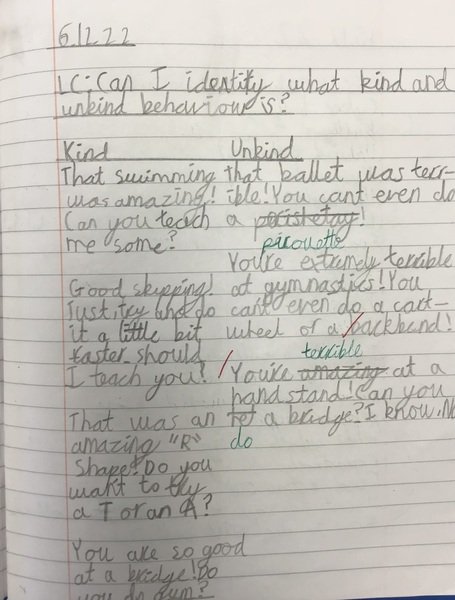 6.12.22
LC: Can I identify what kind and
unkind behaviour is?
Kind
That swimming
was amazing!
Can you teach
me some?
Good skipping!
Just try and do
it a little bit
faster should
I teach you?
That was an
amazing "R"
shape! Do you
want to try
a T or an A?
You are so good
at a bridge! Do
you do gym?
Unkind
that ballet was terr-
ible! You cant even do
a !
pirouette
You're extremely terrible
at gymnastics! You
can't even do a cart-
wheel or a backbend!
terrible
You're amazing at a
handstand! Can you
a bridge? I know. No
do